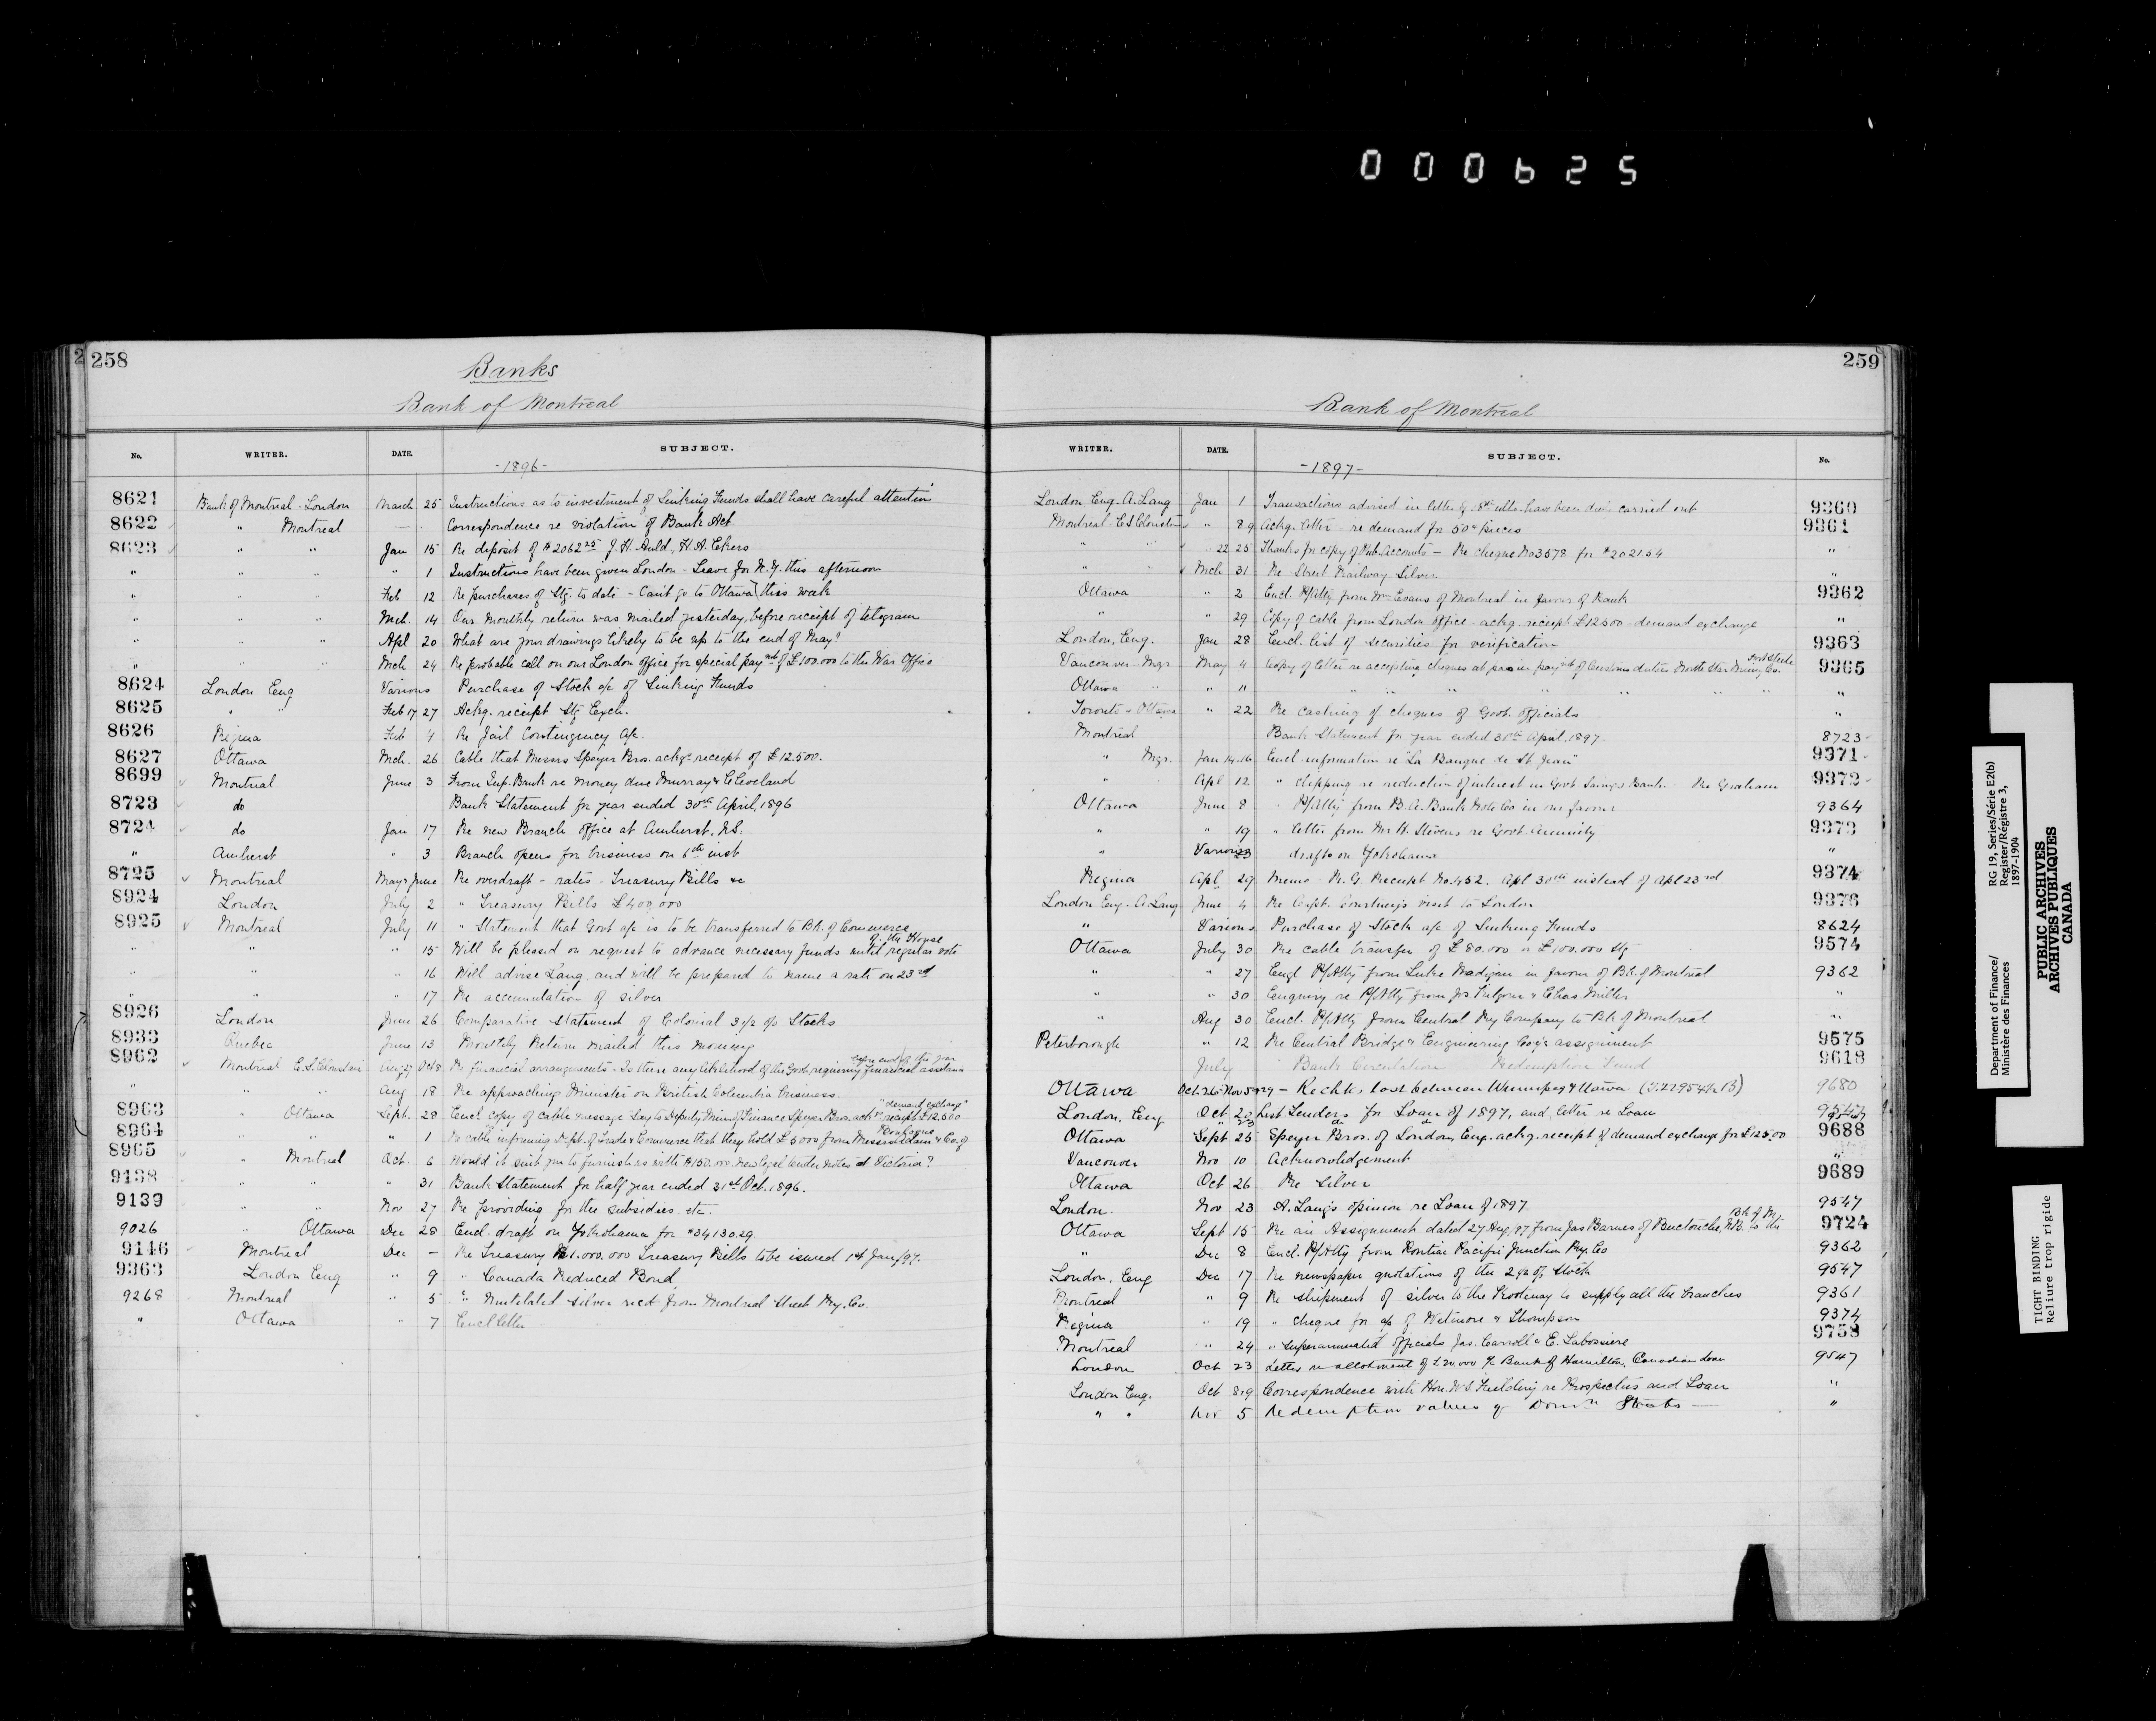 000625
258
Banks
Bank of Montreal
No. WRITER. DATE. SUBJECT.
-1896-
8621 Bank of Montreal - London March 25 Instructions as to investment of Sinking Funds shall have careful attention
8622 " Montreal — Correspondence re violation of Bank Act
8623 " " Jan 15 Re deposit of $2062 25 J. H. Auld, H. A. Ekers
" " " " 1 Instructions have been given London - Leave for N.Y. this afternoon
" " " Feb 12 Re purchases of Stg. to date - Can't go to Ottawa this week
" " " Mch. 14 Our monthly return was mailed yesterday, before receipt of telegram
" " " Apl 20 What are your drawings likely to be up to the end of May?
" " " Mch 24 Re probable call on our London office for special paymt of £100.000 to the War Office
8624 London Eng Various Purchase of Stock a/c of Sinking Funds
8625 " " Feb 17 27 Ackg. receipt Stg Exch.
8626 Regina Feb 4 Re Jail Contingency a/c.
8627 Ottawa Mch. 26 Cable that Messrs Speyer Bros. ackge receipt of £12.500.
8699 Montreal June 3 From Sup. Bank re money due Murray & Cleveland
8723 do Bank Statement for year ended 30th April, 1896
8724 do Jan 17 Re new Branch office at Amherst, N.S.
" Amherst " 3 Branch opens for business on 6th inst
8725 Montreal May & June Re overdraft - rates - Treasury Bills &c
8924 London July 2 " Treasury Bills £400,000
8925 Montreal July 11 " Statement that Govt a/c is to be transferred to Bk. of Commerce
" " " 15 Will be pleased on request to advance necessary funds until regular vote of the House
" " " 16 Will advise Lang and will be prepared to name a rate on 23rd
" " " 17 Re accumulation of silver
8926 London June 26 Comparative statement of Colonial 3 1/2 % Stocks
8933 Quebec June 13 Monthly Return mailed this morning
8962 Montreal E. S. Clouston Aug 27 Oct 8 Re financial arrangements - Is there any likelihood of the Govt. requiring financial assistance before end of this year
" " " Aug 18 Re approaching Minister on British Columbia business.
8963 " Ottawa Sept. 28 Encl. copy of cable message Say to Deputy Min of Finance Speyer Bros. ack receipt £12,500 "demand exchange"
8964 " " " 1 Re cable informing Dept. of Trade & Commerce that they hold £5000 from Messrs Adam & Co. of Boulogne
8965 " Montreal Oct. 6 Would it suit you to furnish us with $150.000 new legal tender notes at Victoria?
9138 " " " 31 Bank Statement for half year ended 31st Oct. 1896.
9139 " " Nov 27 Re providing for the subsidies etc.
9026 " Ottawa Dec 28 Encl. draft on Yokohama for $34130.29.
9146 Montreal Dec – Re Treasury £1.000,000 Treasury Bills to be issued 1st Jan/97.
9363 London Eng " 9 " Canada Reduced Bond
9268 Montreal " 5 " Mutilated silver recd from Montreal Street Ry. Co.
" Ottawa " 7 Encl letter
259
Bank of Montreal
WRITER. DATE. SUBJECT. No.
-1897-
London Eng. A. Lang Jan 1 Transactions advised in letter of ulto. have been duly carried out 9360
Montreal E S Clouston " 8 9 Ackg. letter - re demand for 50¢ pieces 9361
" " 22 25 Thanks for copy of Pub. Accounts — Re cheque No 3578 for $2021.54 "
" " Mch 31 Re Street Railway Silver "
Ottawa " 2 Encl. P/Atty from Wm Evans of Montreal in favour of Bank 9362
" " 29 Copy of cable from London office - ackg. receipt £12500 - demand exchange "
London, Eng. Jan 28 Encl. list of securities for verification 9363
Vancouver Mgr. May 4 Copy of letter re accepting cheques at par in paymt of Customs duties North Star Mining Co. Fort Steele 9365
Ottawa " " 11 " " " " " " " "
Toronto & Ottawa " 22 Re cashing of cheques of Govt. officials "
Montreal Bank Statement for year ended 30th April, 1897. 8723
" Mgr. Jan 14.16 Encl information re "La Banque de St Jean" 9371
" Apl 12 " clipping re reduction of interest in Govt Savings Banks. Mr Graham 9372
Ottawa June 8 " P/Atty from B. A. Bank Note Co in our favour 9364
" " 19 " letter from Mr H. Stevens re Govt. Annuity 9373
" Various 23 drafts on Yokohama "
Regina Apl 29 Memo R. G. Receipt No. 452. Apl 30th instead of Apl 23rd 9374
London Eng. A. Lang June 4 Re Capt. Courtney's visit to London 9376
" Various Purchase of Stock a/c of Sinking Funds 8624
Ottawa July 30 Re cable transfer of £80.000 or £100.000 Stg 9574
" " 27 Encl P/Atty from Luke Madigan in favour of Bk. of Montreal 9362
" " 30 Enquiry re P/Atty from Jos Kilgour & Chas. Miller "
" Aug 30 Encl. P/Atty from Central Ry Company to Bk of Montreal "
Peterborough " 12 Re Central Bridge & Engineering Coy's assignment 9575
July Bank Circulation Redemption Fund 9618
Ottawa Oct. 26 Nov 5 & 29 — Re chks, lost between Winnipeg & Ottawa 9680
London, Eng Oct 22 23 List Tenders for Loan of 1897, and letter re Loan 9547
Ottawa Sept 25 Speyer Bros. of London, Eng. ackg. receipt of demand exchange for £12500 9688
Vancouver Nov 10 Acknowledgement "
Ottawa Oct 26 Re Silver 9689
London. Nov 23 A. Lang's opinion re Loan of 1897 9547
Ottawa Sept 15 Re an Assignment dated 27 Aug. 97 from Jas Barnes of Buctouche, N.B. to the Bk. of Mtl 9724
" Dec 8 Encl. P/Atty from Pontiac Pacific Junction Ry. Co 9362
London, Eng Dec 17 Re newspaper quotations of the 2 1/2 % Stock 9547
Montreal " 9 Re shipment of silver to the Kootenay to supply all the branches 9361
Regina " 19 " cheque for a/c of Wetmore & Thompson 9374
Montreal " 24 " superannuated officials Jas. Carroll & E. Labossiere 9758
London Oct 23 Letter re allotment of £20,000 Bank of Hamilton, Canadian Loan 9547
London Eng. Oct 8&9 Correspondence with Hon. W. S. Fielding re Prospectus and Loan "
" " Nov 5 Redemption values of Domn Stocks — "
Department of Finance/
Ministère des Finances
RG 19, Series/Série E2(b)
Register/Régistre 3,
1897-1904
PUBLIC ARCHIVES
ARCHIVES PUBLIQUES
CANADA
TIGHT BINDING
Reliure trop rigide